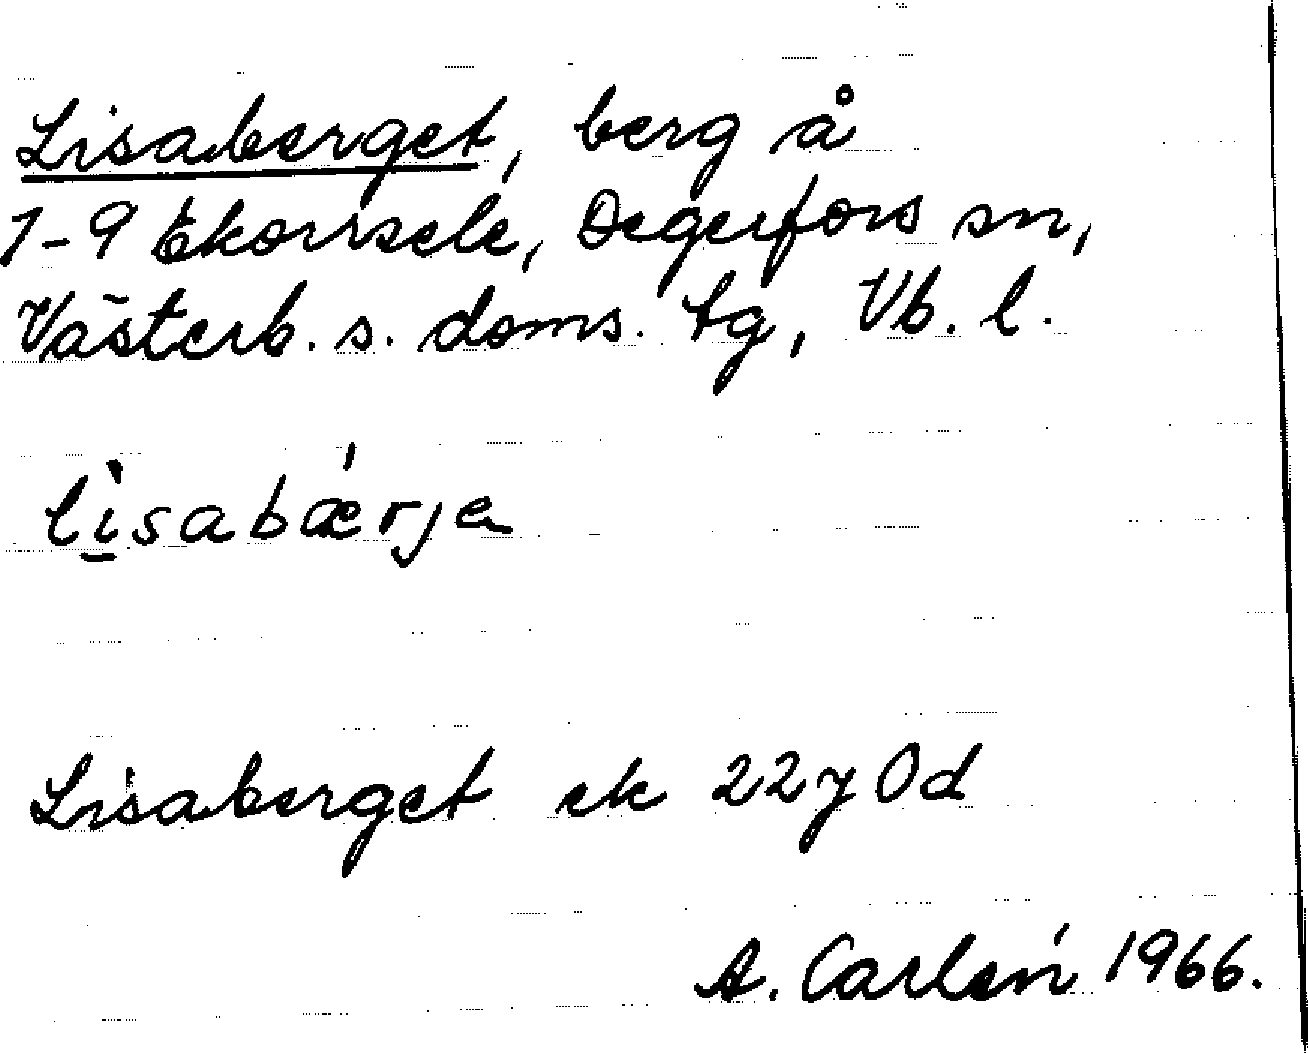 Lisaberget, berg å
1-9 Ekorrsele, Degerfors sn,
Västerb. s. doms. tg, Vb. l.
lìsabǽrja
Lisaberget ek 22y0d
A. Carlén 1966.